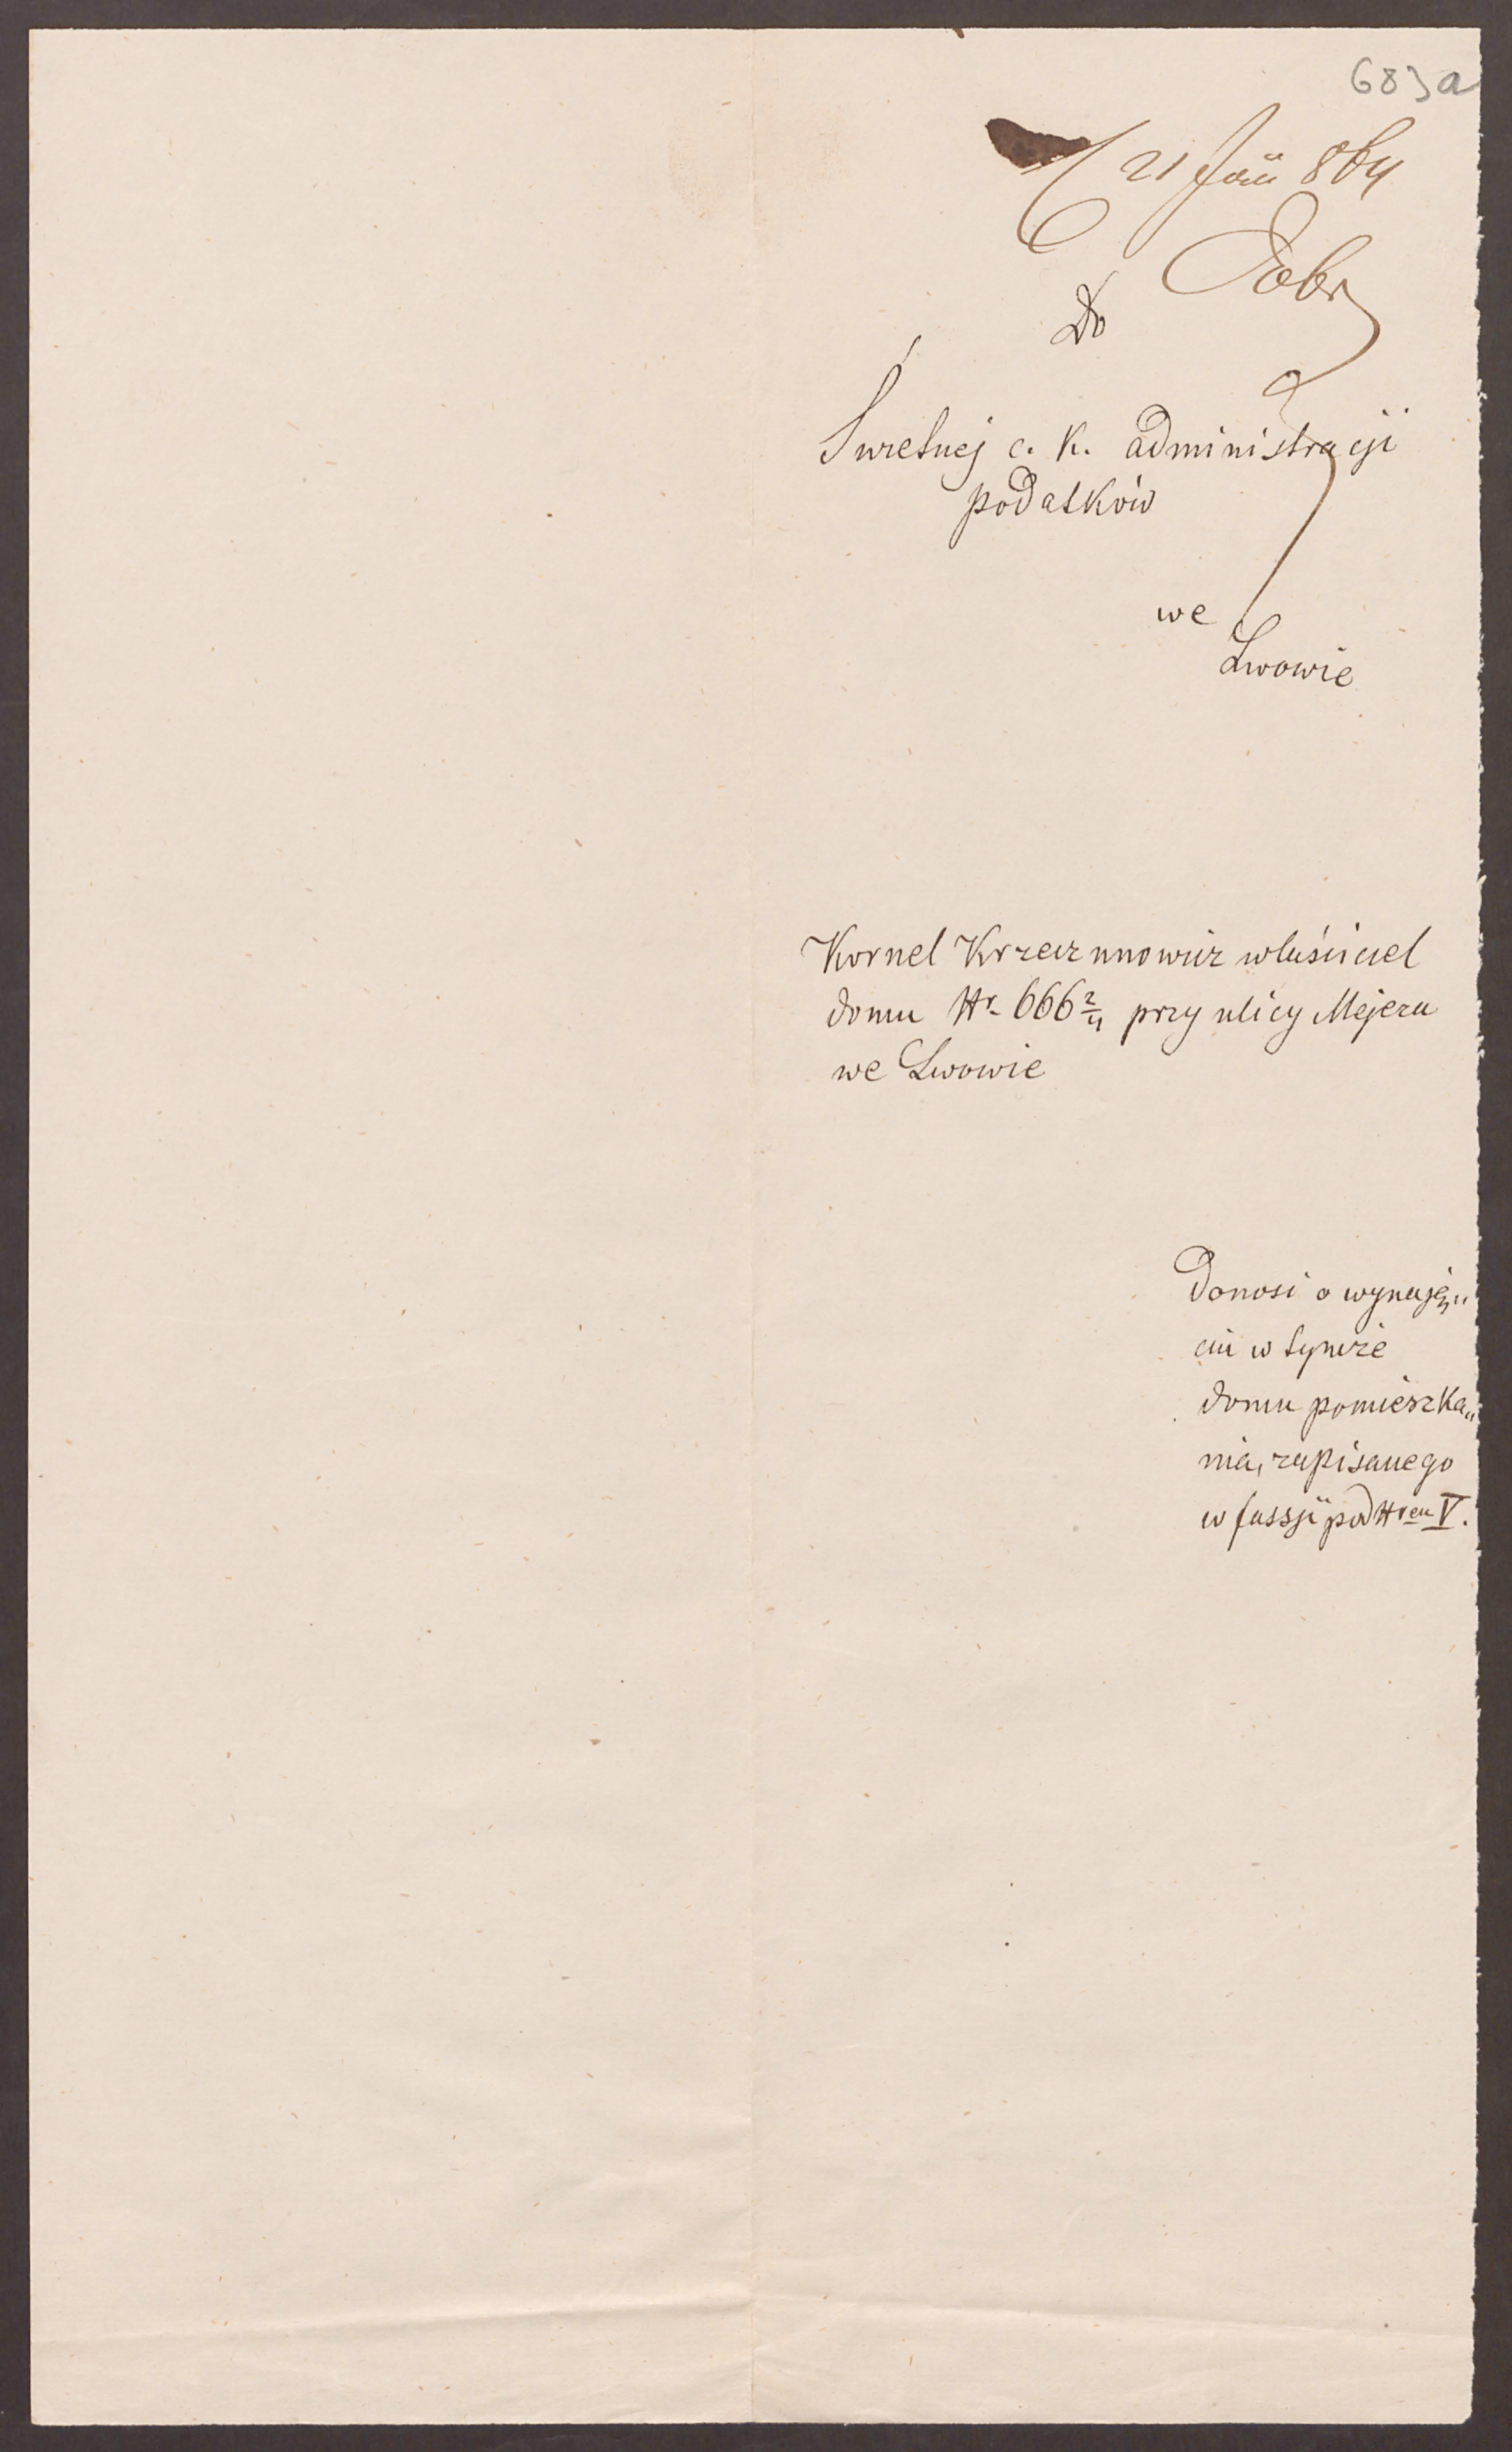 683a
21 Jäii 864
Do
Świetnej c. K. administracji
podatków
we
Lwowie
Kornel Krzeczunowicz właściciel
domu Nr. 666 2/4 przy ulicy Mejera
we Lwowie
Donosi o wynaję„
ciu w tymże
domu pomieszka„
nia, zapisanego
w fassji pod Nrem V.